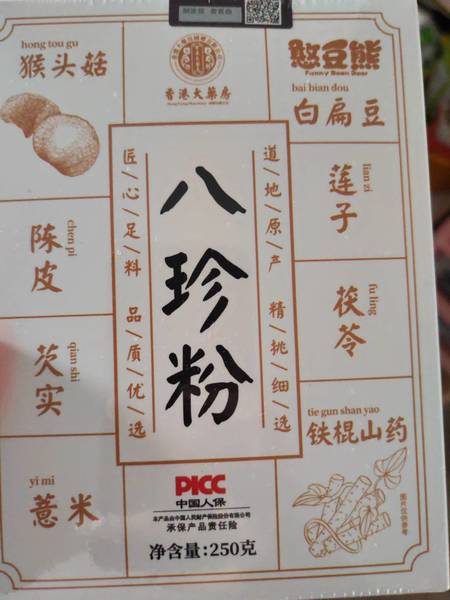 hong tou gu
猴头菇
香港大藥房
憨豆熊
Funny Bean Bear
bai bian dou
白扁豆
匠/心/足/料 品/质/优/选
八珍粉
道/地/原/产 精/挑/细/选
lian zi
莲子
chen pi
陈皮
fu ling
茯苓
qian shi
芡实
tie gun shan yao
铁棍山药
yi mi
薏米
PICC
中国人保
本产品由中国人民财产保险股份有限公司
承保产品责任险
净含量:250克
图片仅供参考